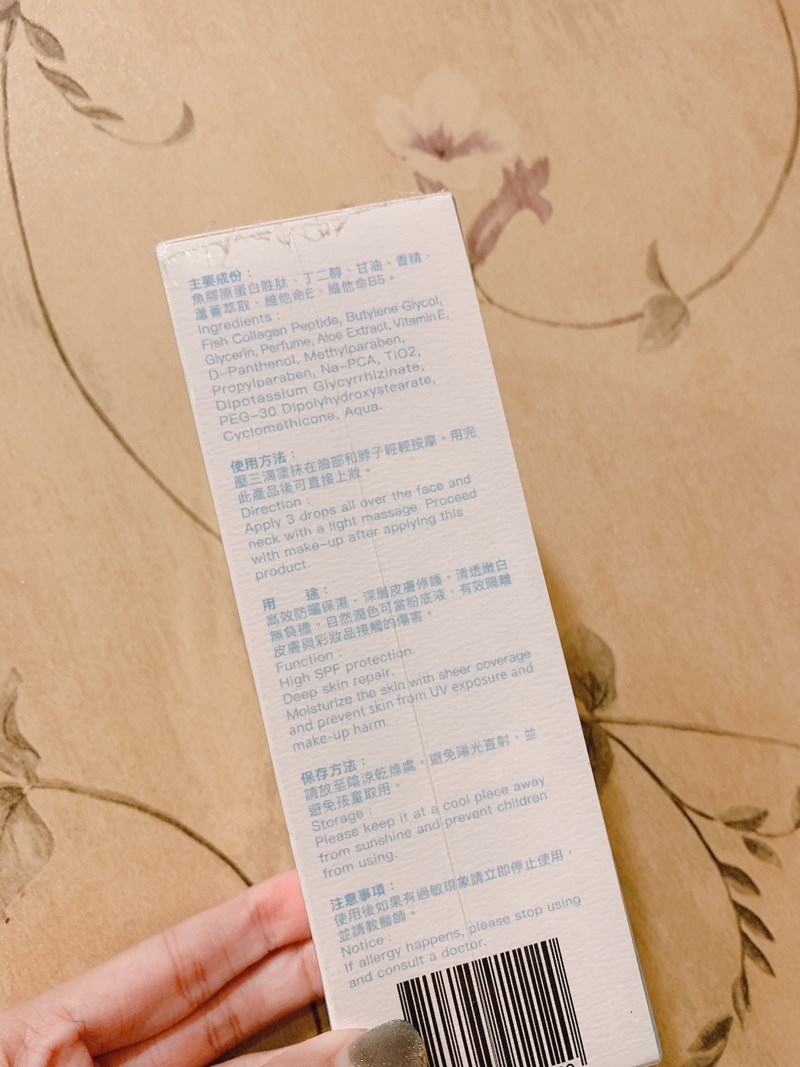 主要成份：
魚膠原蛋白胜肽、丁二醇、甘油、香精、
蘆薈萃取、維他命E、維他命B5。
Ingredients：
Fish Collagen Peptide, Butylene Glycol,
Glycerin, Perfume, Aloe Extract, Vitamin E,
D-Panthenol, Methylparaben,
Propylparaben, Na-PCA, TiO2,
Dipotassium Glycyrrhizinate,
PEG-30 Dipolyhydroxystearate,
Cyclomethicone, Aqua.
使用方法：
壓三滴塗抹在臉部和脖子輕輕按摩。用完
此產品後可直接上妝。
Direction：
Apply 3 drops all over the face and
neck with a light massage. Proceed
with make-up after applying this
product.
用　　途：
高效防曬保濕，深層皮膚修護。清透嫩白
無負擔。自然潤色可當粉底液，有效隔離
皮膚與彩妝品接觸的傷害。
Function：
High SPF protection.
Deep skin repair.
Moisturize the skin with sheer coverage
and prevent skin from UV exposure and
make-up harm.
保存方法：
請放至陰涼乾燥處，避免陽光直射，並
避免孩童取用。
Storage：
Please keep it at a cool place away
from sunshine and prevent children
from using.
注意事項：
使用後如果有過敏現象請立即停止使用，
並請教醫師。
Notice：
If allergy happens, please stop using
and consult a doctor.